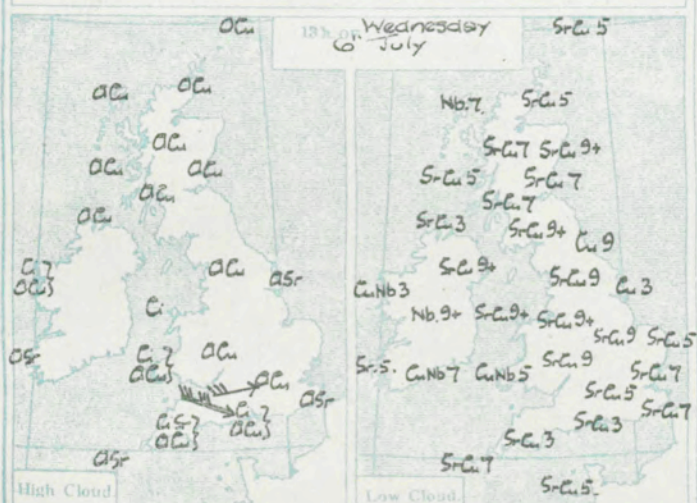 13h on Wednesday
6th July
ACu
ACu
ACu
ACu
ACu
ACu
ACu
ACu
Ci }
ACu }
ACu
ASr
Ci
ASr
Ci }
ACu }
ACu
ACu
ASr
Ci }
ACu }
CiSr }
ACu }
ASr
High Cloud.
SrCu 5
Nb.7.
SrCu 5
SrCu 7
SrCu 9+
SrCu 5
SrCu 7
SrCu 7
SrCu 3
SrCu 9+
Cu 9
SrCu 9+
SrCu 9
Cu 3
CuNb 3
Nb.9+
SrCu 9+
SrCu 9+
SrCu 9
SrCu 5
Sr.5.
CuNb 7
CuNb 5
SrCu 9
SrCu 7
SrCu 5
SrCu 7
SrCu 3
SrCu 3
SrCu 7
SrCu 5.
Low Cloud.